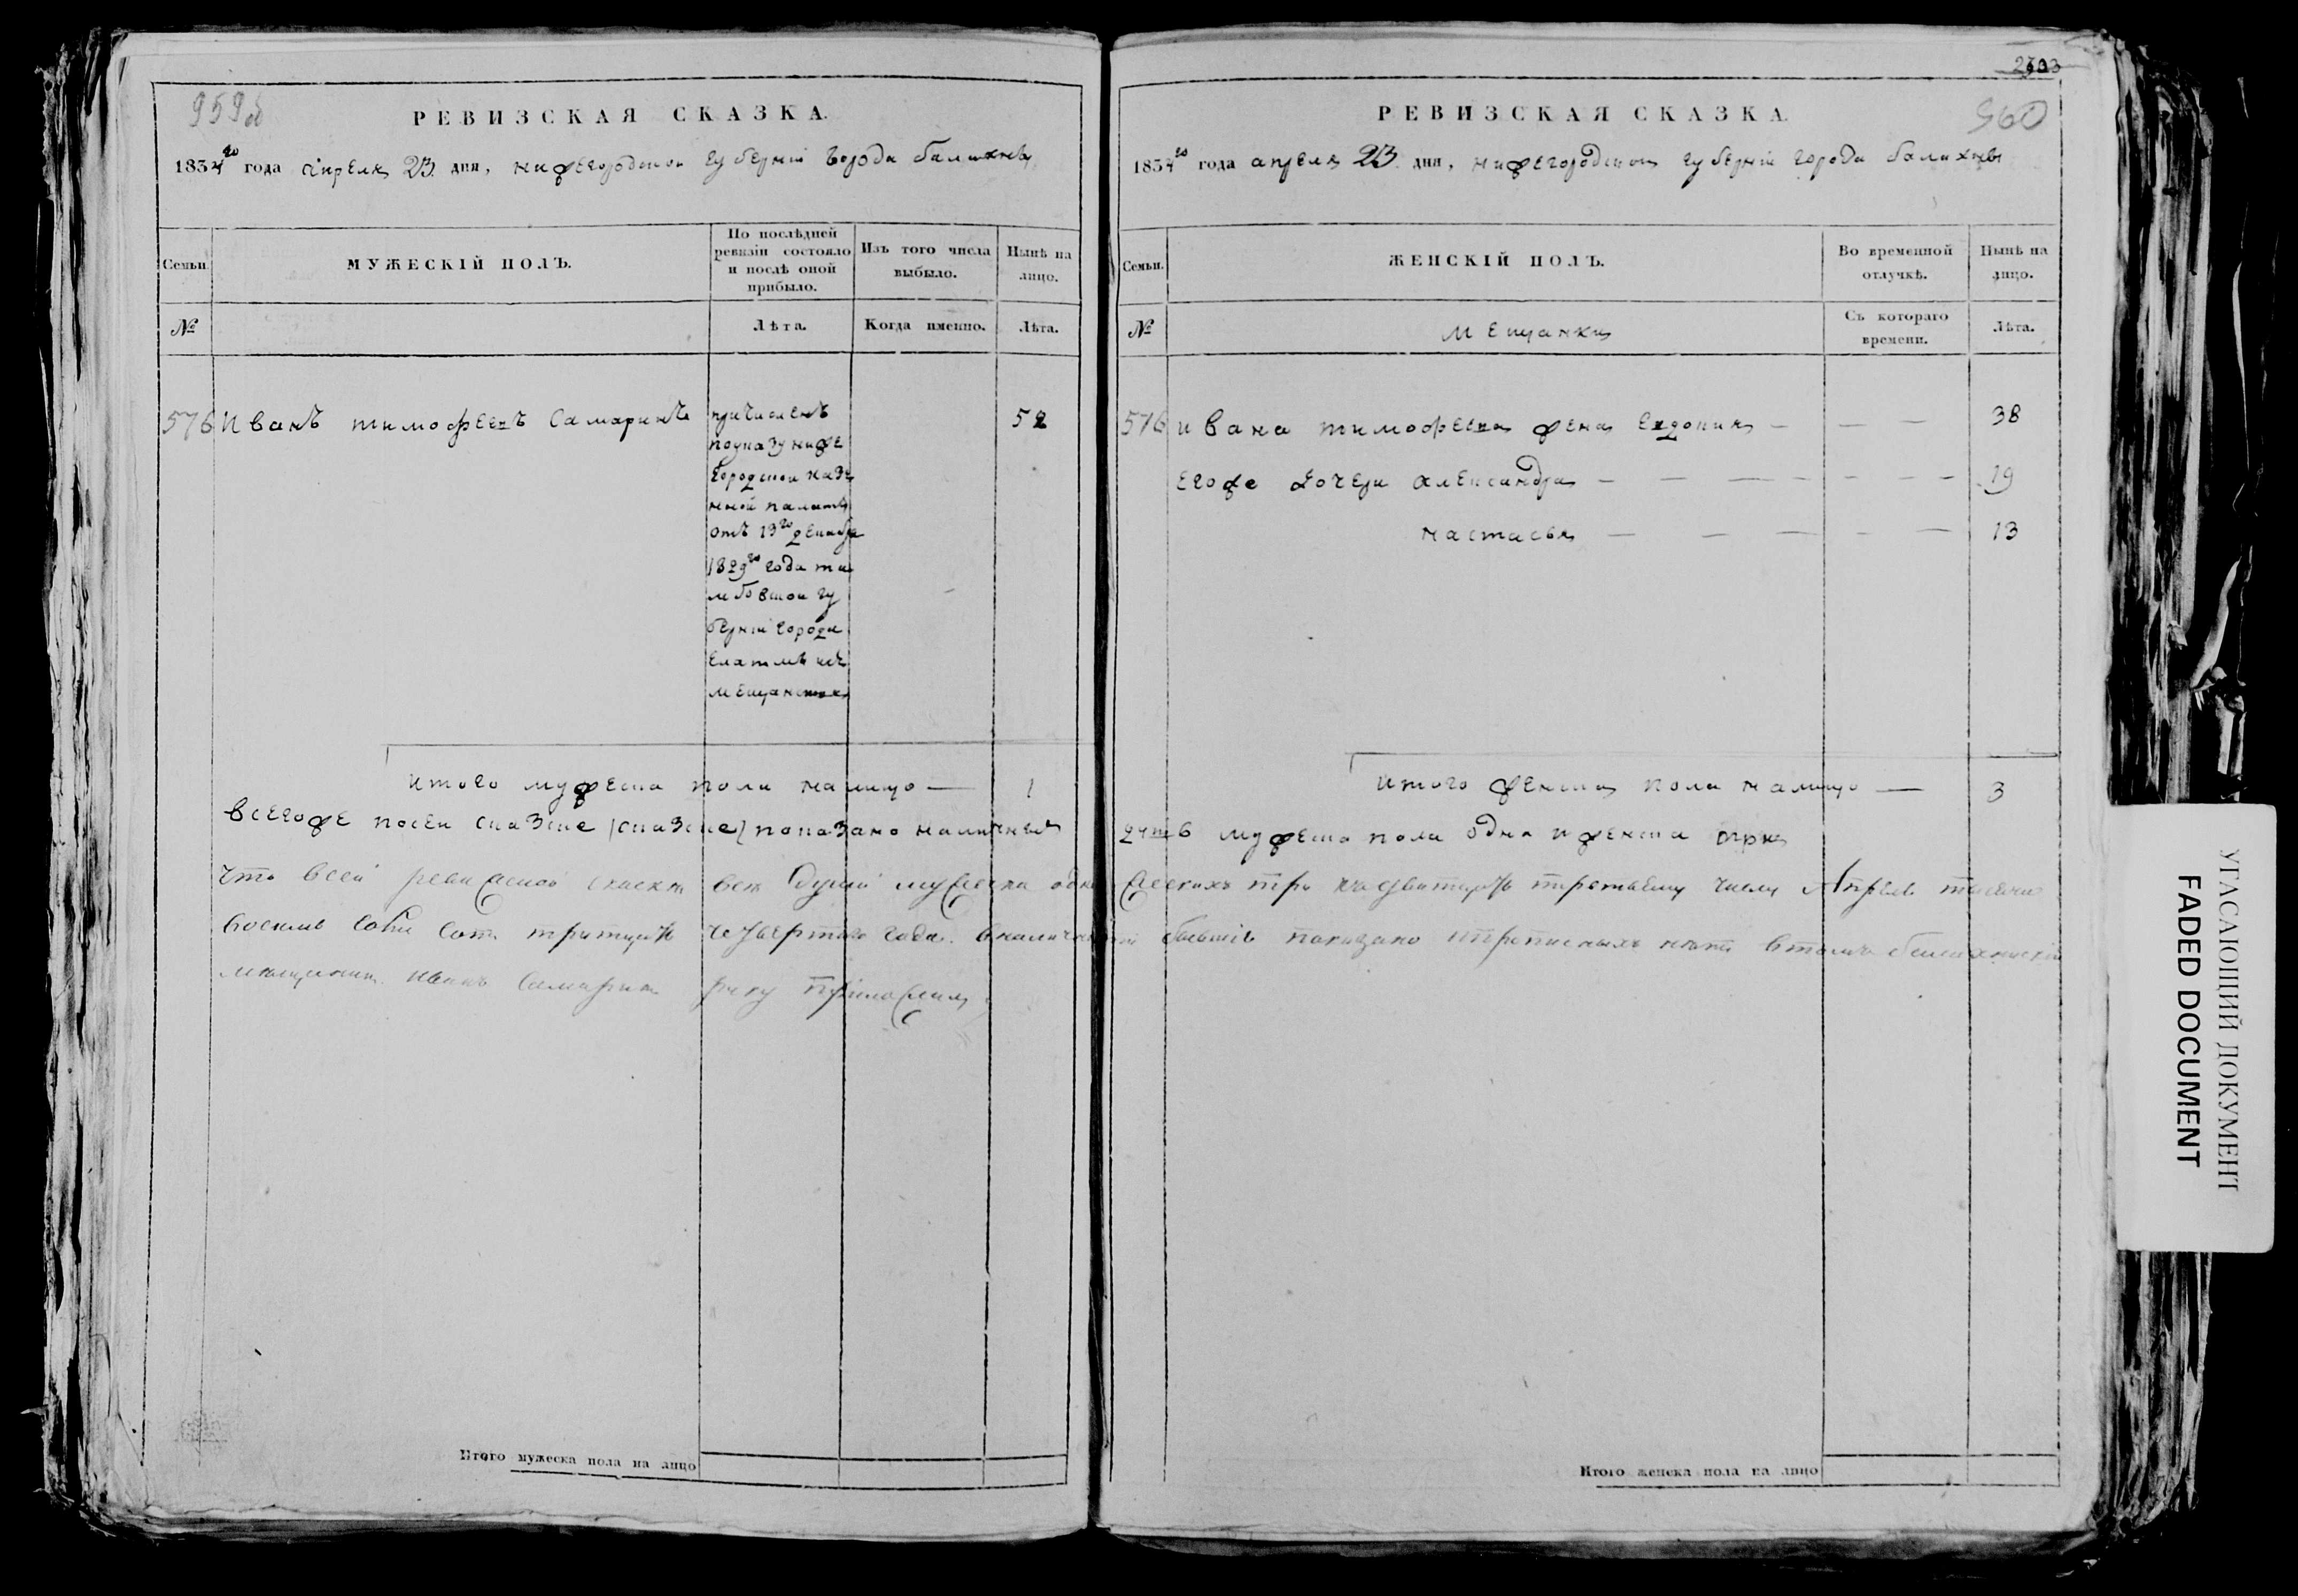 959об
РЕВИЗСКАЯ СКАЗКА.
1834го года апреля 23 дня, нижегородской губерніи города балахны
Семьи.
МУЖЕСКІЙ ПОЛЪ.
По послѣдней ревизіи состояло и послѣ оной прибыло.
Изъ того числа выбыло.
Нынѣ на лицо.
№
Лѣта.
Когда именно.
Лѣта.
576 Иванъ тимофеевъ Самаринъ
причисленъ
поуказу ниже
городской казе
нной палаты
отъ 13го декабря
1829го года та
мбовской гу
берніи города
елатмы изъ
мещанства
52
итого мужеска пола налицо — 1
всегоже посей сказке (сказке) показано наличныхъ
что всей ревиской скаски всех душ мужеска одна
восемь сотъ тритцать четвертого года. вналичности
мещанинъ Иванъ Самаринъ руку приложилъ
Итого мужеска пола на лицо
2603
960
РЕВИЗСКАЯ СКАЗКА.
1834го года апреля 23 дня, нижегородской губерніи города балахны
Семьи.
ЖЕНСКІЙ ПОЛЪ.
Во временной отлучкѣ.
Нынѣ на лицо.
№
мещанки
Съ котораго времени.
Лѣта.
576 ивана тимофеева жена Евдокия — — — 38
егоже дочери александра — — — — — — — 19
настасья — — — — — 13
итого женска пола налицо — 3
душъ мужеска пола одна и женска три
женскихъ три дватцать третьему числу Апреля тысеча
бывшие показано ипрописныхъ нетъ втомъ балахнский
Итого женска пола на лицо
УГАСАЮЩИЙ ДОКУМЕНТ
FADED DOCUMENT